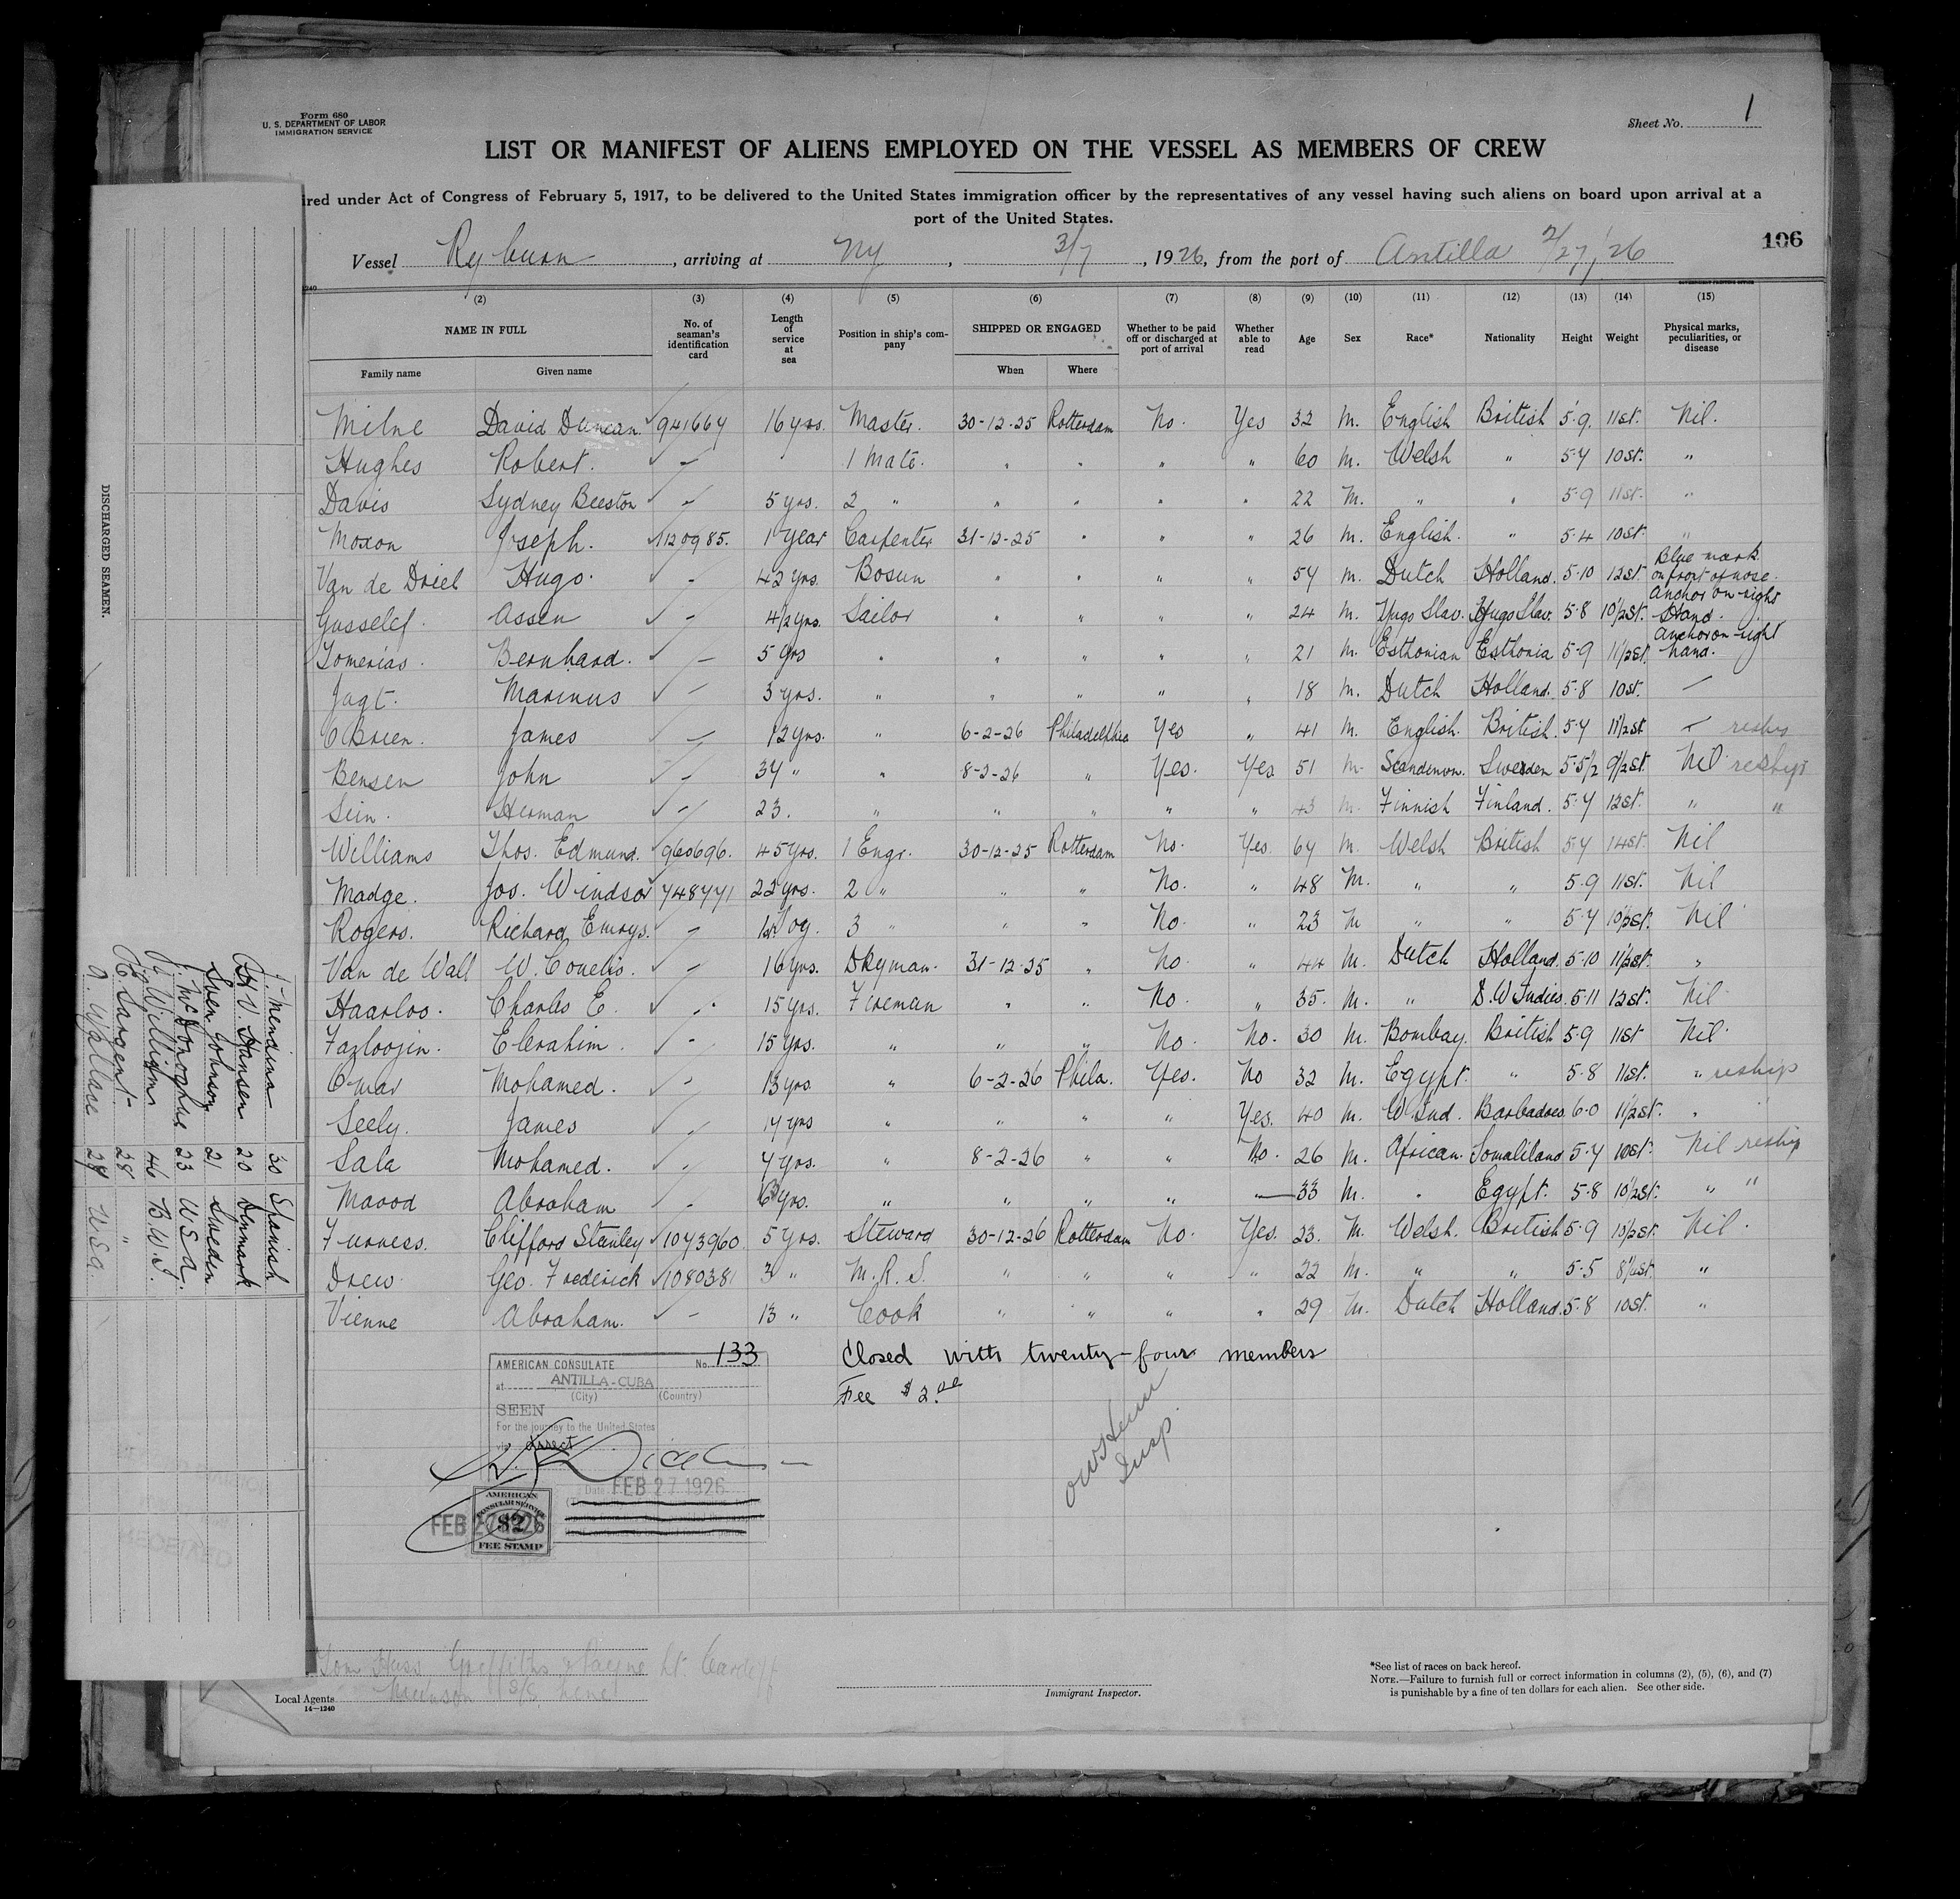 Form 680
U. S. DEPARTMENT OF LABOR
IMMIGRATION SERVICE
Sheet No. 1
LIST OR MANIFEST OF ALIENS EMPLOYED ON THE VESSEL AS MEMBERS OF CREW
ired under Act of Congress of February 5, 1917, to be delivered to the United States immigration officer by the representatives of any vessel having such aliens on board upon arrival at a
port of the United States.
106
Vessel Ryburn, arriving at Ny, 3/7, 1926, from the port of Antilla 2/27/26
(2) (3) (4) (5) (6) (7) (8) (9) (10) (11) (12) (13) (14) (15)
NAME IN FULL No. of seaman's identification card Length of service at sea Position in ship's com-pany SHIPPED OR ENGAGED Whether to be paid off or discharged at port of arrival Whether able to read Age Sex Race* Nationality Height Weight Physical marks, peculiarities, or disease
Family name Given name When Where
Milne David Duncan 941667 16 yrs. Master. 30-12-25 Rotterdam No. Yes 32 M. English British 5'9. 11st. Nil.
Hughes Robert. - 1 Mate. " " " " 60 M. Welsh " 5-7 10st. "
Davis Sydney Beeston - 5 yrs. 2 " " " " " 22 M. " " 5-9 11st. "
Moxon Joseph. 1120985. 1 year Carpenter 31-12-25 " " " 26 M. English. " 5-4 10st. "
Van de Driel Hugo. - 42 yrs. Bosun " " " " 57 M. Dutch Holland. 5-10 12st. Blue mark on front of nose.
Gusselef. Assen - 4/2 yrs. Sailor " " " " 24 M. Yugo Slav. Yugo Slav. 5-8 10 1/2st. Anchor on right Hand.
Tomerias. Bernhard. - 5 yrs " " " " " 21 M. Esthonian Esthonia 5-9 11 1/2st. Anchor on right hand.
Jagt. Marinus - 3 yrs. " " " " " 18 M. Dutch Holland. 5-8 10st. -
O'Brien. James - 12 yrs. " 6-2-26 Philadelphia Yes " 41 M. English. British. 5-7 11 1/2st - reship
Bensen John - 37 " " 8-2-26 " Yes. Yes 51 M. Scandenvn. Sweden 5-5 1/2 9 1/2st. Nil reship
Sein. Herman - 23. " " " " " 43 M. Finnish Finland. 5-7 12st. " "
Williams Thos. Edmund. 960696. 45 yrs. 1 Engr. 30-12-25 Rotterdam No. Yes. 67 M. Welsh British 5-7 14st. Nil
Madge. Jos. Windsor 748771 22 yrs. 2 " " " No. " 48 M. " " 5-9 11st. Nil
Rogers. Richard Emrys. - 3 " " " No. " 23 M " " 5-7 10 1/2st. Nil
Van de Wall W. Conelis. - 16 yrs. Dkyman. 31-12-25 " No " 44 M. Dutch Holland. 5-10 11 1/2st. "
Haarloo. Charles E. - 15 yrs. Fireman " " No. " 35. M. " D.W Indies. 5-11 12st. Nil
Fazloojin. Ebrahim. - 15 yrs. " " " No. No. 30 M. Bombay. British 5-9 11st Nil
Omar Mohamed. - 13 yrs. " 6-2-26 Phila. Yes. No 32 M. Egypt. " 5-8 11st. " reship
Seely. James - 17 yrs " " " " Yes. 40 M. W Ind. Barbadoes 6-0 11 1/2st. " "
Sala Mohamed. - 7 yrs. " 8-2-26 " " No. 26 M. African. Somaliland 5-7 10st. Nil reship
Mavod Abraham - yrs. " " " " " 33 M. " Egypt. 5-8 10 1/2st. " "
Furness. Clifford Stanley 1073960. 5 yrs. Steward 30-12-26 Rotterdam No. Yes. 23. M. Welsh. British 5-9 10 1/2st. Nil.
Drew Geo. Frederick 1080381 3 " M.R.S. " " " " 22 M. " " 5-5 8 1/2st. "
Vienne Abraham. - 13 " Cook " " " " 29 M. Dutch Holland. 5-8 10st. "
Closed with twenty-four members
Fee $2.00
AMERICAN CONSULATE No. 133
at ANTILLA-CUBA
(City) (Country)
SEEN
For the journey to the United States
via direct
Date FEB 27 1926
FEB 27 1926
AMERICAN
CONSULAR SERVICE
$2
FEE STAMP
Insp.
DISCHARGED SEAMEN.
J. Mendina 30 Spanish
V. Hansen 20 Denmark
Sven Johnson 21 Sweden
J. McDonoghue 23 U S A.
J. Williams 46 B W I.
E. Sargent 28 "
A. Wallace 27 U S A.
Local Agents
14—1240
Immigrant Inspector.
*See list of races on back hereof.
NOTE.—Failure to furnish full or correct information in columns (2), (5), (6), and (7)
is punishable by a fine of ten dollars for each alien. See other side.